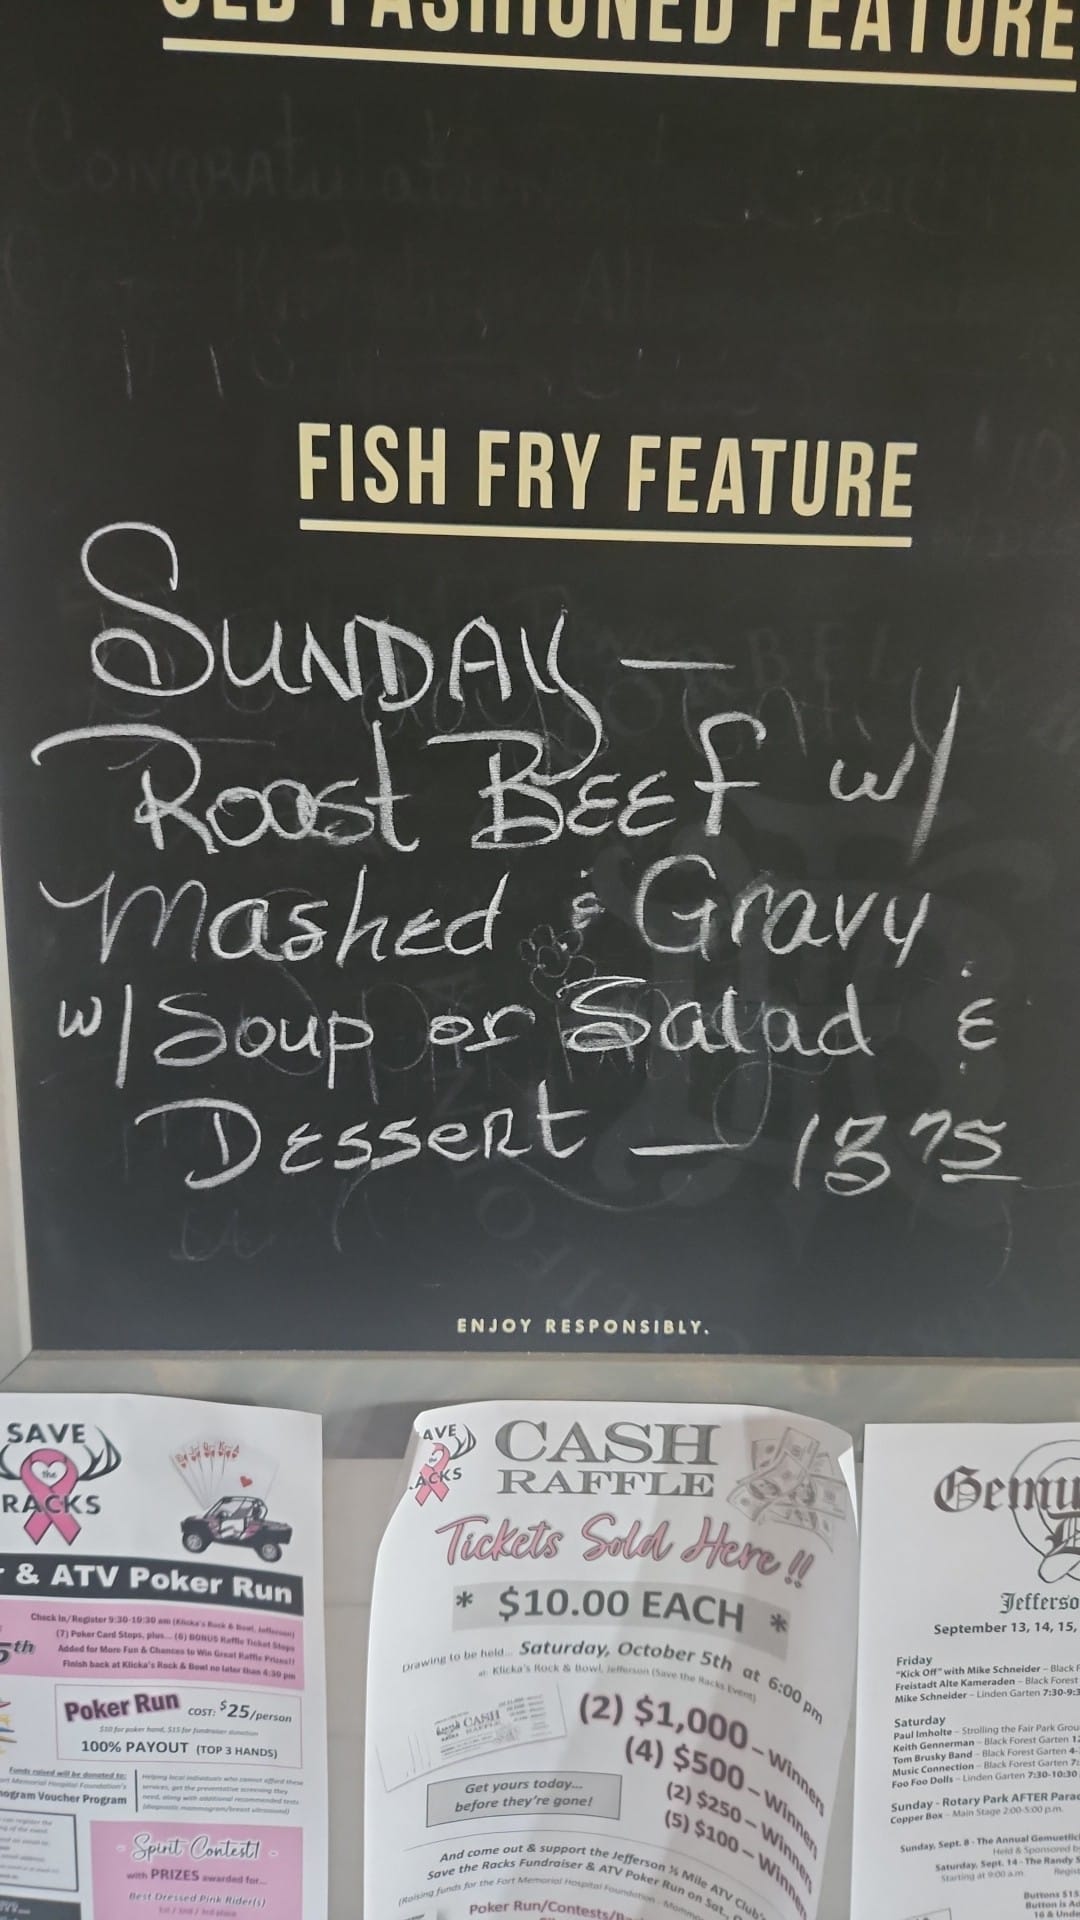 OLD FASHIONED FEATURE
Congratulations
All
FISH FRY FEATURE
SUNDAY —
Roast Beef w/
Mashed & Gravy
w/ Soup or Salad &
Dessert — 13 75
ENJOY RESPONSIBLY.
SAVE
the
RACKS
& ATV Poker Run
Check In/Register 9:30-10:30 am (Klicka's Rock & Bowl, Jefferson)
(7) Poker Card Stops, plus... (6) BONUS Raffle Ticket Stops
5th
Added for More Fun & Chances to Win Great Raffle Prizes!!
Finish back at Klicka's Rock & Bowl no later than 4:30 pm
Poker Run COST: $25/person
$10 for poker hand, $15 for fundraiser donation
100% PAYOUT (TOP 3 HANDS)
Funds raised will be donated to:
Fort Memorial Hospital Foundation's
Program Voucher Program
Helping local individuals who cannot afford these
services, get the preventative screening they
need, along with additional recommended tests
(diagnostic mammogram/breast ultrasound)
- Spirit Contest! -
with PRIZES awarded for...
Best Dressed Pink Rider(s)
1st / 2nd / 3rd place
SAVE
the
RACKS
CASH
RAFFLE
Tickets Sold Here!!
* $10.00 EACH *
Drawing to be held... Saturday, October 5th at 6:00 pm
at: Klicka's Rock & Bowl, Jefferson (Save the Racks Event)
CASH
RAFFLE
(2) $1,000 – Winners
(4) $500 – Winners
(2) $250 – Winners
(5) $100 – Winners
Get yours today...
before they're gone!
And come out & support the Jefferson ½ Mile ATV Club's
Save the Racks Fundraiser & ATV Poker Run on Sat.,
(Raising funds for the Fort Memorial Hospital Foundation -
Poker Run/Contests/
Gemu
Jefferso
September 13, 14, 15,
Friday
"Kick Off" with Mike Schneider – Black F
Freistadt Alte Kameraden – Black Forest
Mike Schneider – Linden Garten 7:30-9:3
Saturday
Paul Imholte – Strolling the Fair Park Grou
Keith Gennerman – Black Forest Garten 12
Tom Brusky Band – Black Forest Garten 4-
Music Connection – Black Forest Garten 7:
Foo Foo Dolls – Linden Garten 7:30-10:30
Sunday - Rotary Park AFTER Parad
Copper Box – Main Stage 2:00-5:00 p.m.
Sunday, Sept. 8 - The Annual Gemuetlich
Held & Sponsored b
Saturday, Sept. 14 - The Randy S
Starting at 9:00 a.m. Regist
Buttons $15
Button is Ad
16 & Unde